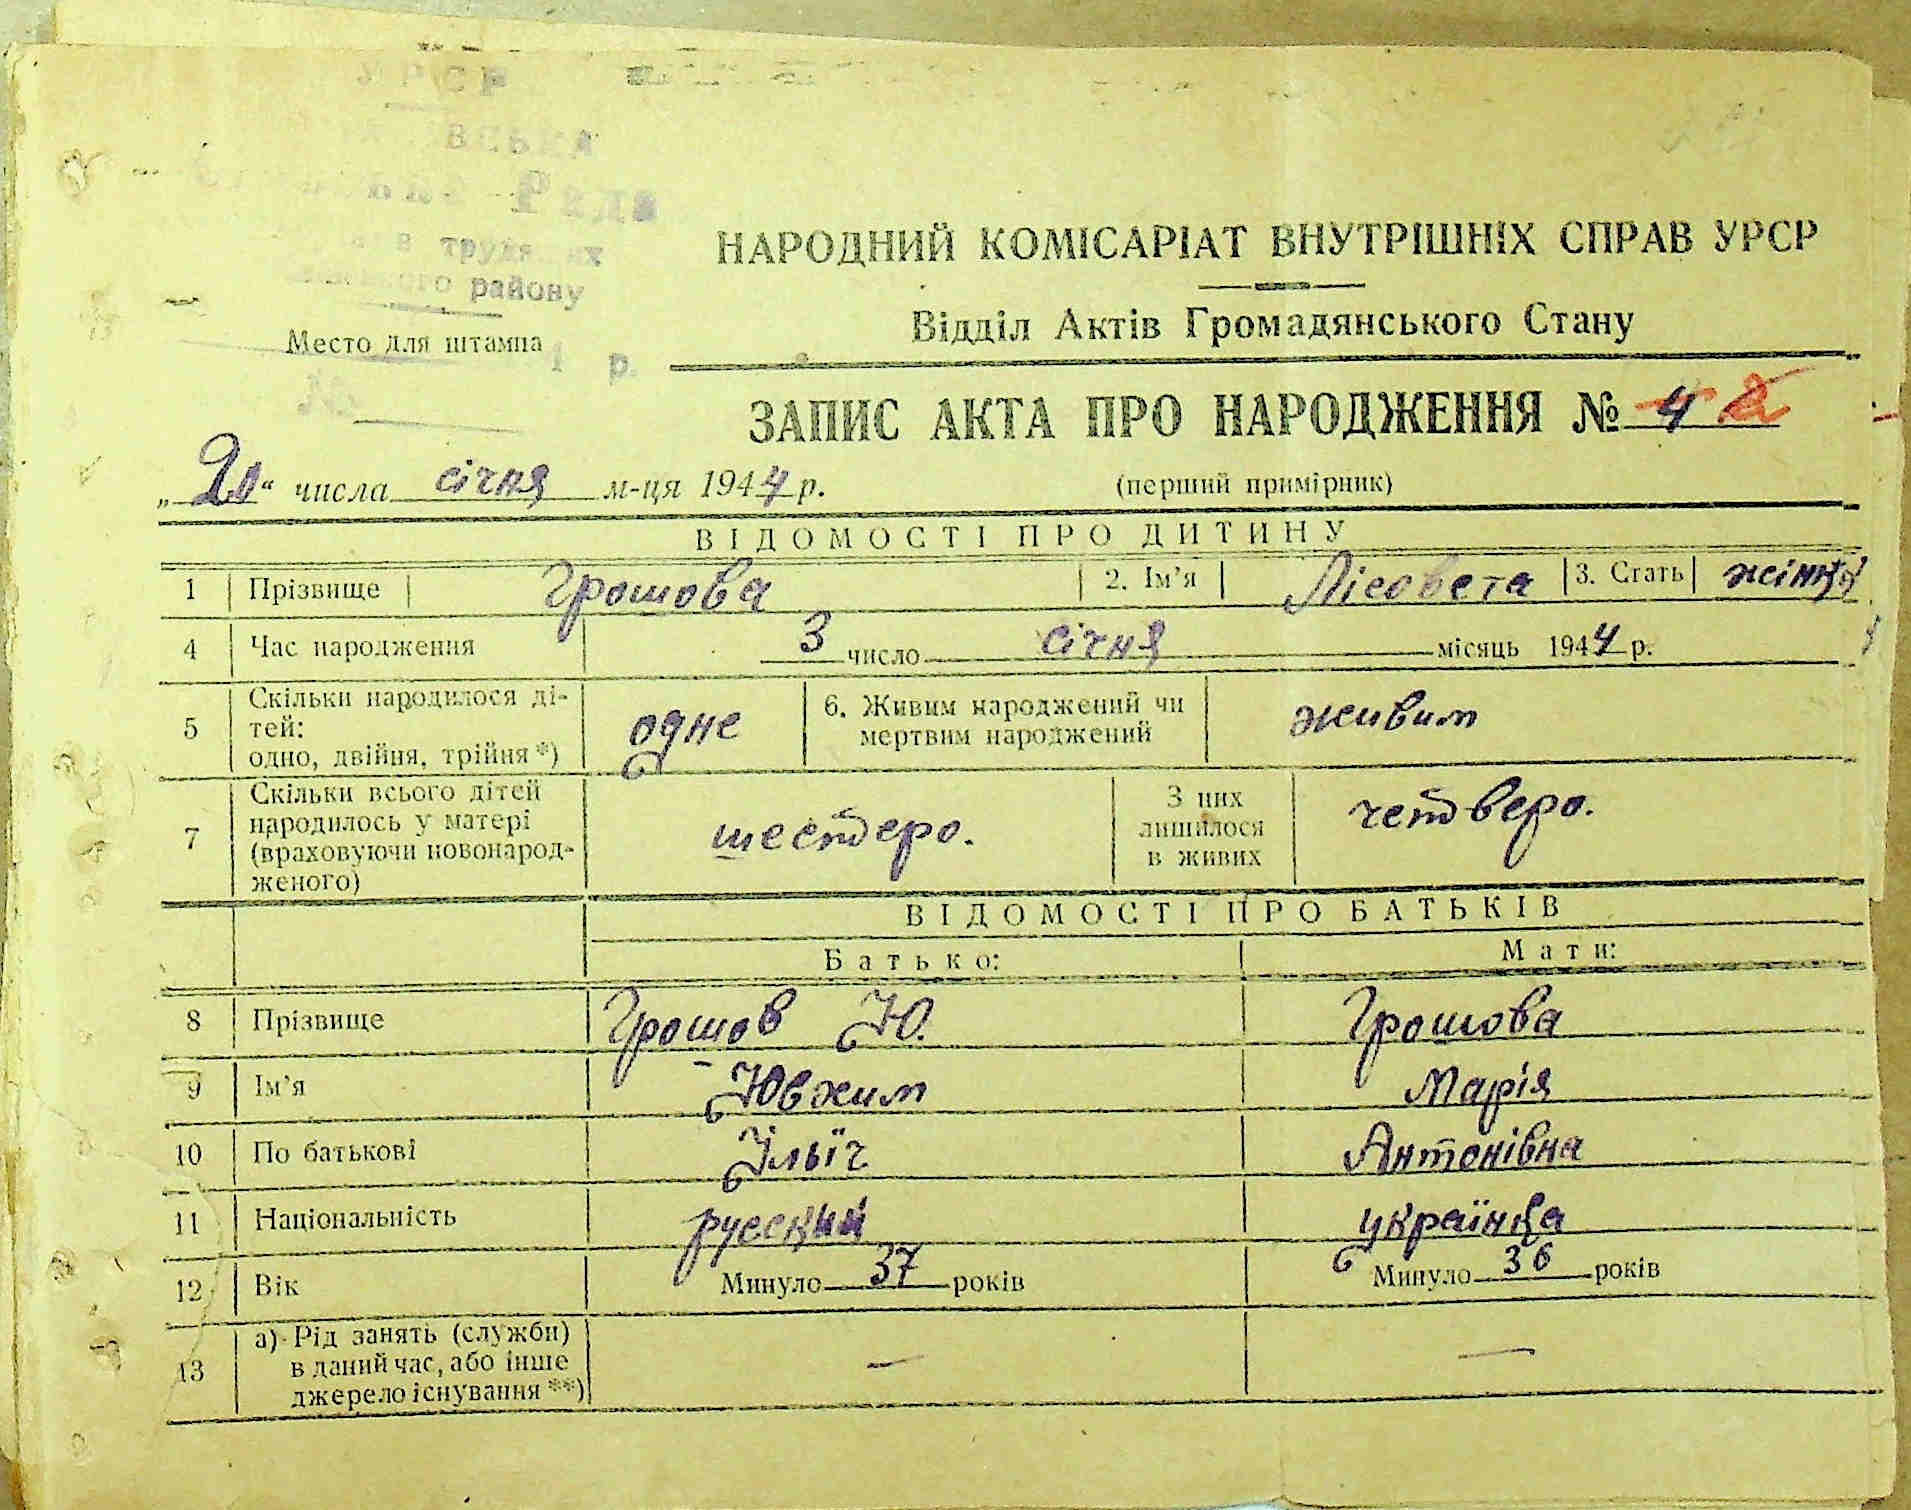 УРСР
ВСЬКА
Рада
трудя их
ого району
Место для штампа
р.
НАРОДНИЙ КОМІСАРІАТ ВНУТРІШНІХ СПРАВ УРСР
Відділ Актів Громадянського Стану
ЗАПИС АКТА ПРО НАРОДЖЕННЯ № 4 2
„20“ числа січня м-ця 1944 р. (перший примірник)
ВІДОМОСТІ ПРО ДИТИНУ
1 Прізвище Грошова 2. Ім’я Лісовета 3. Стать жіноч
4 Час народження 3 число січня місяць 1944 р.
5 Скільки народилося ді-
тей:
одно, двійня, трійня *)
одне
6. Живим народжений чи
мертвим народжений
живим
7 Скільки всього дітей
народилось у матері
(враховуючи новонарод-
женого)
шестеро.
З них
лишилося
в живих
четверо.
ВІДОМОСТІ ПРО БАТЬКІВ
Батько: Мати:
8 Прізвище Грошов Ю. Грошова
9 Ім’я Ювхим Марія
10 По батькові Ільїч Антонівна
11 Національність русский українка
12 Вік Минуло 37 років Минуло 36 років
13 а) Рід занять (служби)
в даний час, або інше
джерело існування **)
— —